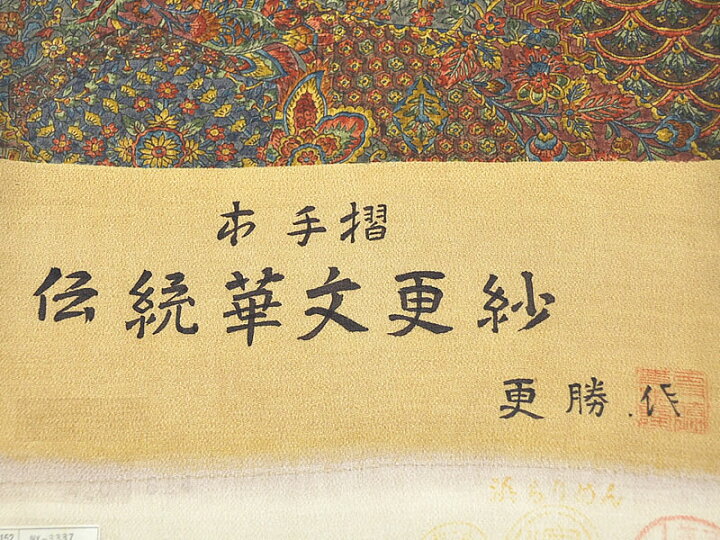 本手摺
伝統華文更紗
更勝作
浜ちりめん